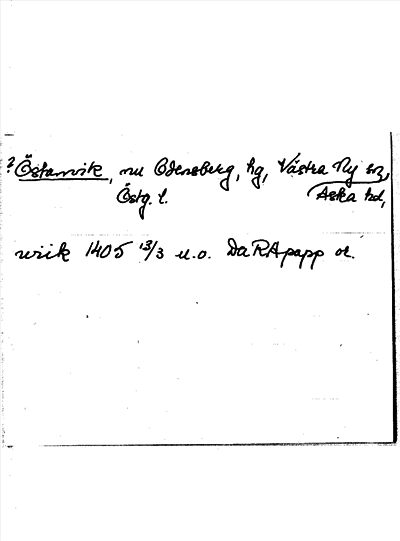 ? Östanvik, nu Odensberg, hg, Västra Ny sn,
Östg. l. Aska hd,
wiik 1405 13/3 u.o. DaRApapp or.